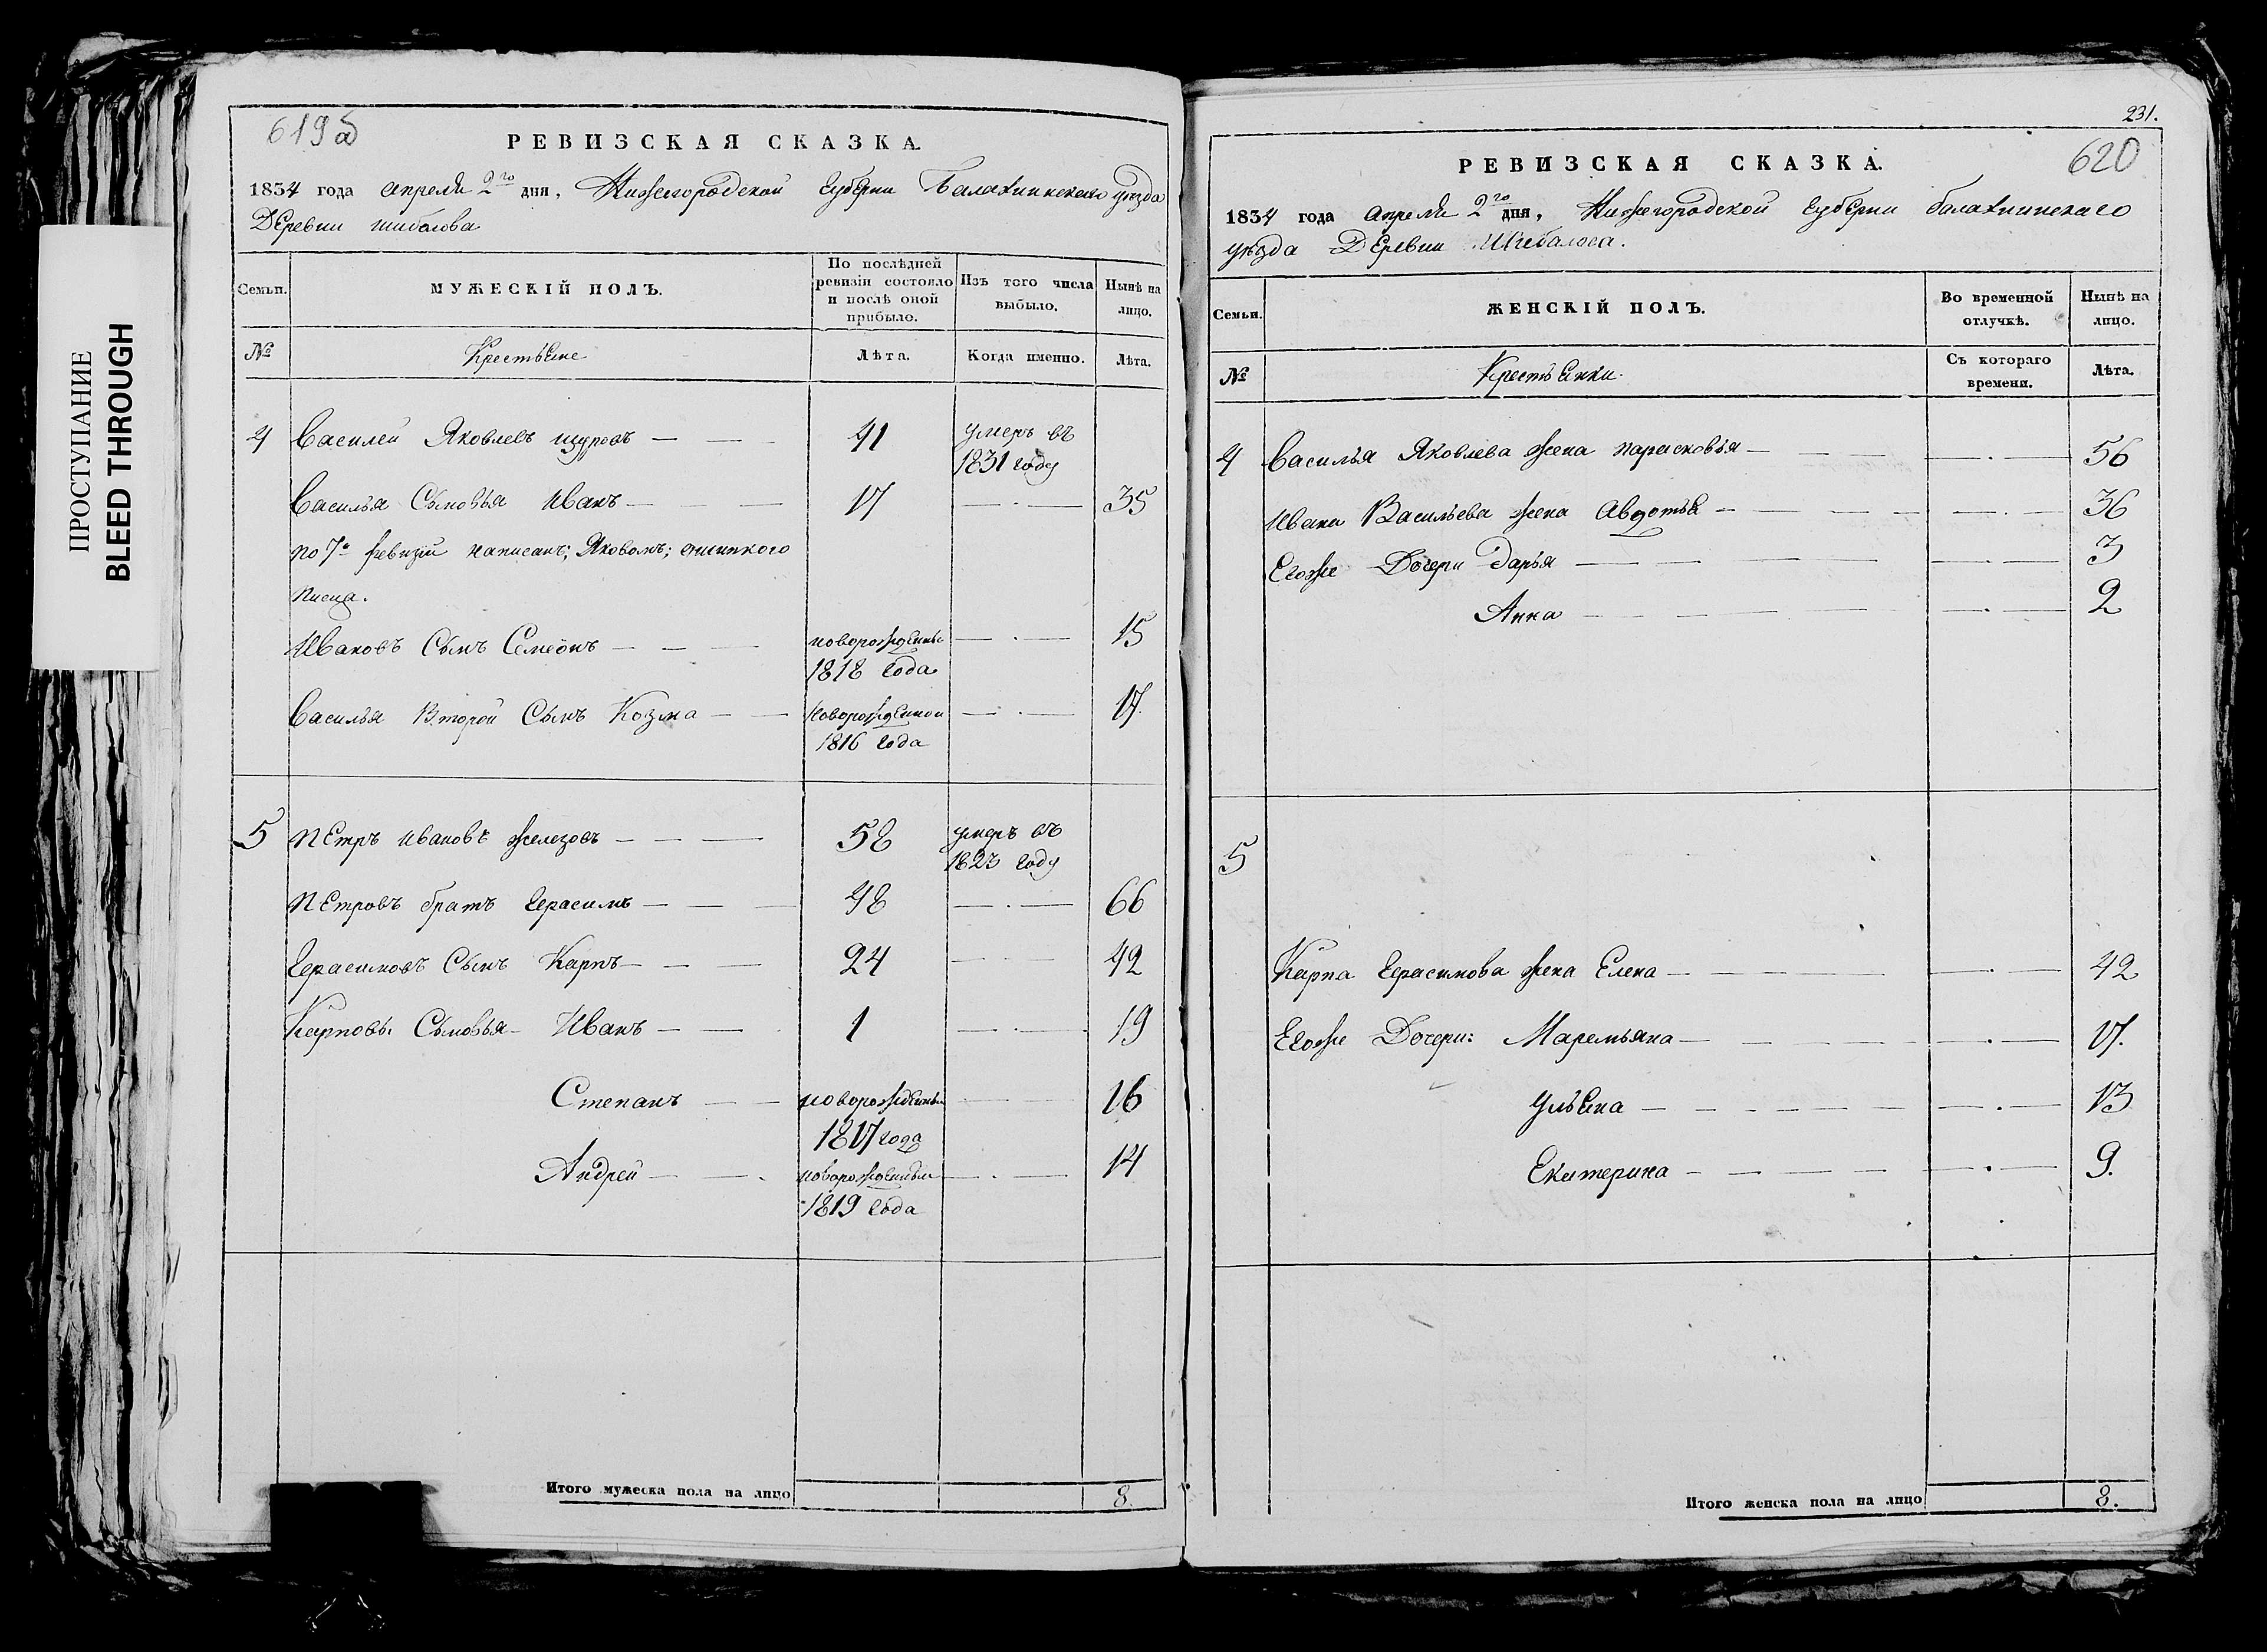 ПРОСТУПАНИЕ
BLEED THROUGH
619 об
РЕВИЗСКАЯ СКАЗКА.
1834 года апреля 2го дня, Нижегородской губернии Балахнинскаго уезда
Деревни шибалова
Семьи. МУЖЕСКІЙ ПОЛЪ. По послѣдней ревизіи состояло и послѣ оной прибыло. Изъ того числа выбыло. Нынѣ на лицо.
№ Крестьяне Лѣта. Когда именно. Лѣта.
4 Василей Яковлевъ щуровъ — — 41 умеръ въ
1831 году
Василья Сыновья Иванъ — — — 17 — . — 35
по 7й ревизіи написанъ; Яковомъ; ошипкою
писца.
Ивановъ Сынъ Семёнъ — — — новорожденны — . — 15
1818 года
Василья Второй Сынъ Козма — — новорожденной — . — 17.
1816 года
5 Петръ Ивановъ железовъ — — — 58 умеръ въ
1823 году
Петровъ братъ Герасимъ — — — 48 — . — 66
Герасимовъ Сынъ Карпъ — — — 24 — — 42
Карповы Сыновья — Иванъ — — 1 — . — 19
Степанъ — — новорожденны — — 16
1817 года
Андрей — — . новорожденны — . — 14
1819 года
Итого мужеска пола на лицо 8.
231.
620
РЕВИЗСКАЯ СКАЗКА.
1834 года апреля 2го дня, Нижегородской губернии балахнинскаго
уѣзда Деревни Шибалова.
Семьи. ЖЕНСКІЙ ПОЛЪ. Во временной отлучкѣ. Нынѣ на лицо.
№ Крестьянки. Съ котораго времени. Лѣта.
4 Василья Яковлева жена парасковья — — — — . — 56
Ивана Васильева жена Авдотья — — — — — . — 36
Егоже Дочери Дарья — — — — — . — 3
Анна — — — — — — . — 2
5
Карпа Герасимова жена Елена — — — — — . — 42
Егоже Дочери: Маремьяна — — — — — — . — 17.
Ульяна — — — — — — — . — 13
Екатерина — — — — — — . — 9.
Итого женска пола на лицо 8.